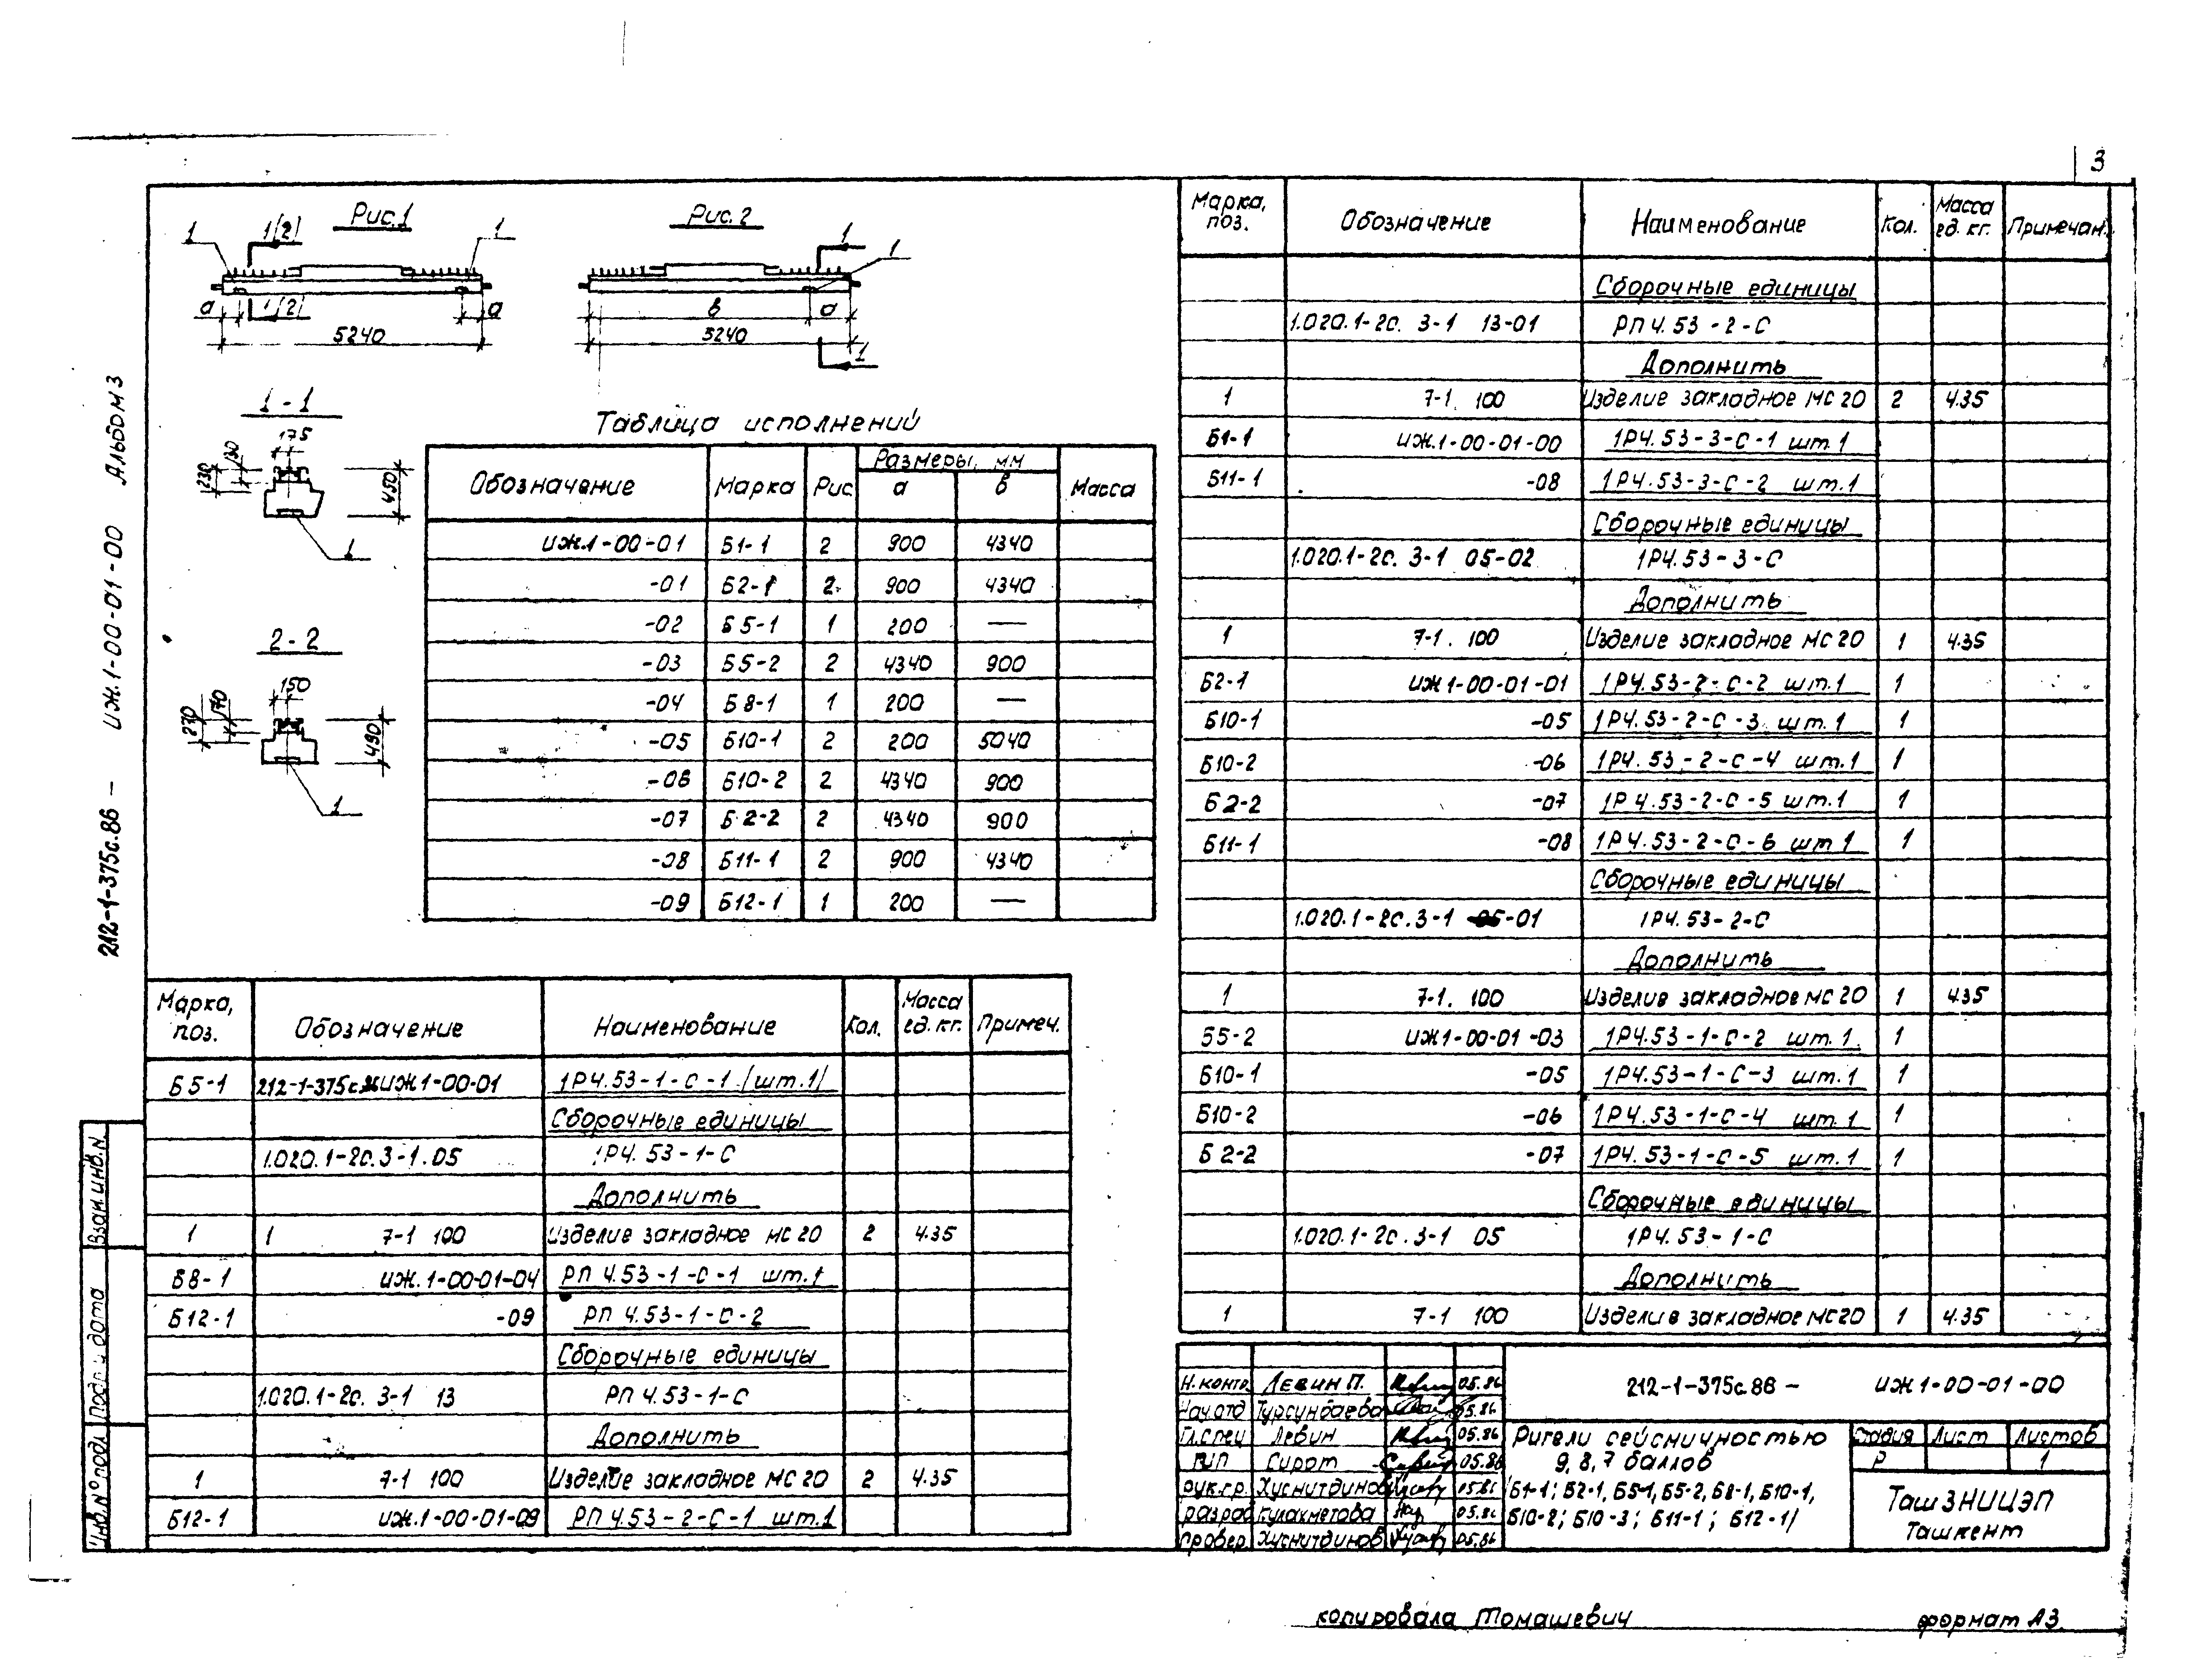 3
Рис.1
Рис.2
1 1(2) 1
1 1
а 1(2) а
в а
5240
5240
1
1-1
175
230 130 450
1
2-2
150
230 170 490
1
212-1-375с.86 - ИЖ.1-00-01-00 Альбом 3
Таблица исполнений
Обозначение Марка Рис Размеры, мм Масса
а в
ИЖ.1-00-01 Б1-1 2 900 4340
-01 Б2-1 2 900 4340
-02 Б5-1 1 200 —
-03 Б5-2 2 4340 900
-04 Б8-1 1 200 —
-05 Б10-1 2 200 5040
-06 Б10-2 2 4340 900
-07 Б2-2 2 4340 900
-08 Б11-1 2 900 4340
-09 Б12-1 1 200 —
Марка, поз. Обозначение Наименование Кол. Масса ед. кг. Примеч.
Б5-1 212-1-375с.86 ИЖ1-00-01 1Р4.53-1-С-1 /шт.1/
Сборочные единицы
1.020.1-2с.3-1.05 1Р4.53-1-С
Дополнить
1 1 7-1 100 Изделие закладное МС20 2 4.35
Б8-1 ИЖ.1-00-01-04 РП 4.53-1-С-1 шт.1
Б12-1 -09 РП 4.53-1-С-2
Сборочные единицы
1.020.1-2с. 3-1 13 РП 4.53-1-С
Дополнить
1 7-1 100 Изделие закладное МС20 2 4.35
Б12-1 ИЖ.1-00-01-09 РП 4.53-2-С-1 шт.1
Взам.инв.N
Подп и дата
Инв.N°подл
Марка, поз. Обозначение Наименование Кол. Масса ед. кг. Примечан.
Сборочные единицы
1.020.1-2с. 3-1 13-01 РП 4.53-2-С
Дополнить
1 7-1. 100 Изделие закладное МС20 2 4.35
Б1-1 ИЖ.1-00-01-00 1Р4.53-3-С-1 шт.1
Б11-1 -08 1Р4.53-3-С-2 шт.1
Сборочные единицы
1.020.1-2с. 3-1 05-02 1Р4.53-3-С
Дополнить
1 7-1. 100 Изделие закладное МС20 1 4.35
Б2-1 ИЖ1-00-01-01 1Р4.53-2-С-2 шт.1 1
Б10-1 -05 1Р4.53-2-С-3 шт.1 1
Б10-2 -06 1Р4.53-2-С-4 шт.1 1
Б2-2 -07 1Р4.53-2-С-5 шт.1 1
Б11-1 -08 1Р4.53-2-С-6 шт1 1
Сборочные единицы
1.020.1-2с.3-1 05-01 1Р4.53-2-С
Дополнить
1 7-1. 100 Изделие закладное МС20 1 4.35
Б5-2 ИЖ1-00-01-03 1Р4.53-1-С-2 шт.1 1
Б10-1 -05 1Р4.53-1-С-3 шт.1 1
Б10-2 -06 1Р4.53-1-С-4 шт.1 1
Б2-2 -07 1Р4.53-1-С-5 шт.1 1
Сборочные единицы
1.020.1-2с.3-1 05 1Р4.53-1-С
Дополнить
1 7-1 100 Изделие закладное МС20 1 4.35
Н.контр. Левин П. 05.86
Нач.отд Турсунбаева 05.86
Гл.спец Левин 05.86
ГИП Сирот 05.86
рук.гр. Хуснитдинов 05.86
разраб Кулахметова 05.86
провер. Хуснитдинов 05.86
212-1-375с.86 - ИЖ1-00-01-00
Ригели сейсмичностью
9, 8, 7 баллов
/Б1-1; Б2-1, Б5-1, Б5-2, Б8-1, Б10-1,
Б10-2; Б10-3; Б11-1; Б12-1/
Стадия Лист Листов
Р 1
ТашЗНИИЭП
Ташкент
копировала Томашевич
формат А3